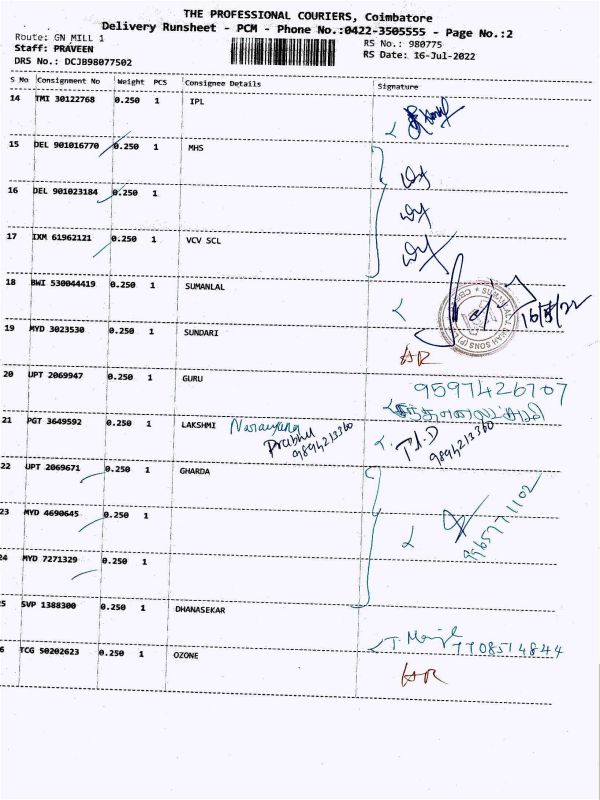 THE PROFESSIONAL COURIERS, Coimbatore
Delivery Runsheet - PCM - Phone No.:0422-3505555 - Page No.:2
Route: GN MILL 1
RS No.: 980775
Staff: PRAVEEN
RS Date: 16-Jul-2022
DRS No.: DCJB98077502
S No Consignment No Weight PCS Consignee Details Signature
14 TMI 30122768 0.250 1 IPL
15 DEL 901016770 0.250 1 MHS
16 DEL 901023184 0.250 1
17 IXM 61962121 0.250 1 VCV SCL
18 BWI 530044419 0.250 1 SUMANLAL
19 MYD 3023530 0.250 1 SUNDARI
20 UPT 2069947 0.250 1 GURU 9597426707
21 PGT 3649592 0.250 1 LAKSHMI Narayana
Prabhu 9894213360 T.I.D 9894213360
22 UPT 2069671 0.250 1 GHARDA
23 MYD 4690645 0.250 1
9965771102
24 MYD 7271329 0.250 1
5 SVP 1388300 0.250 1 DHANASEKAR
7708574844
6 TCG 50202623 0.250 1 OZONE